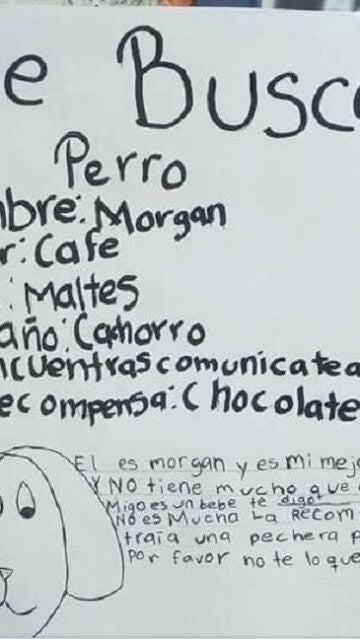 e Busc
Perro
mbre: Morgan
r: Cafe
: Maltes
año: Cachorro
ncuentras comunicate a
ecompensa: Chocolate
El es morgan y es mi mejo
Y NO tiene mucho que
Migo es un bebe te digo
NO es Mucha La Recom
traia una pechera p
Por favor no te lo que